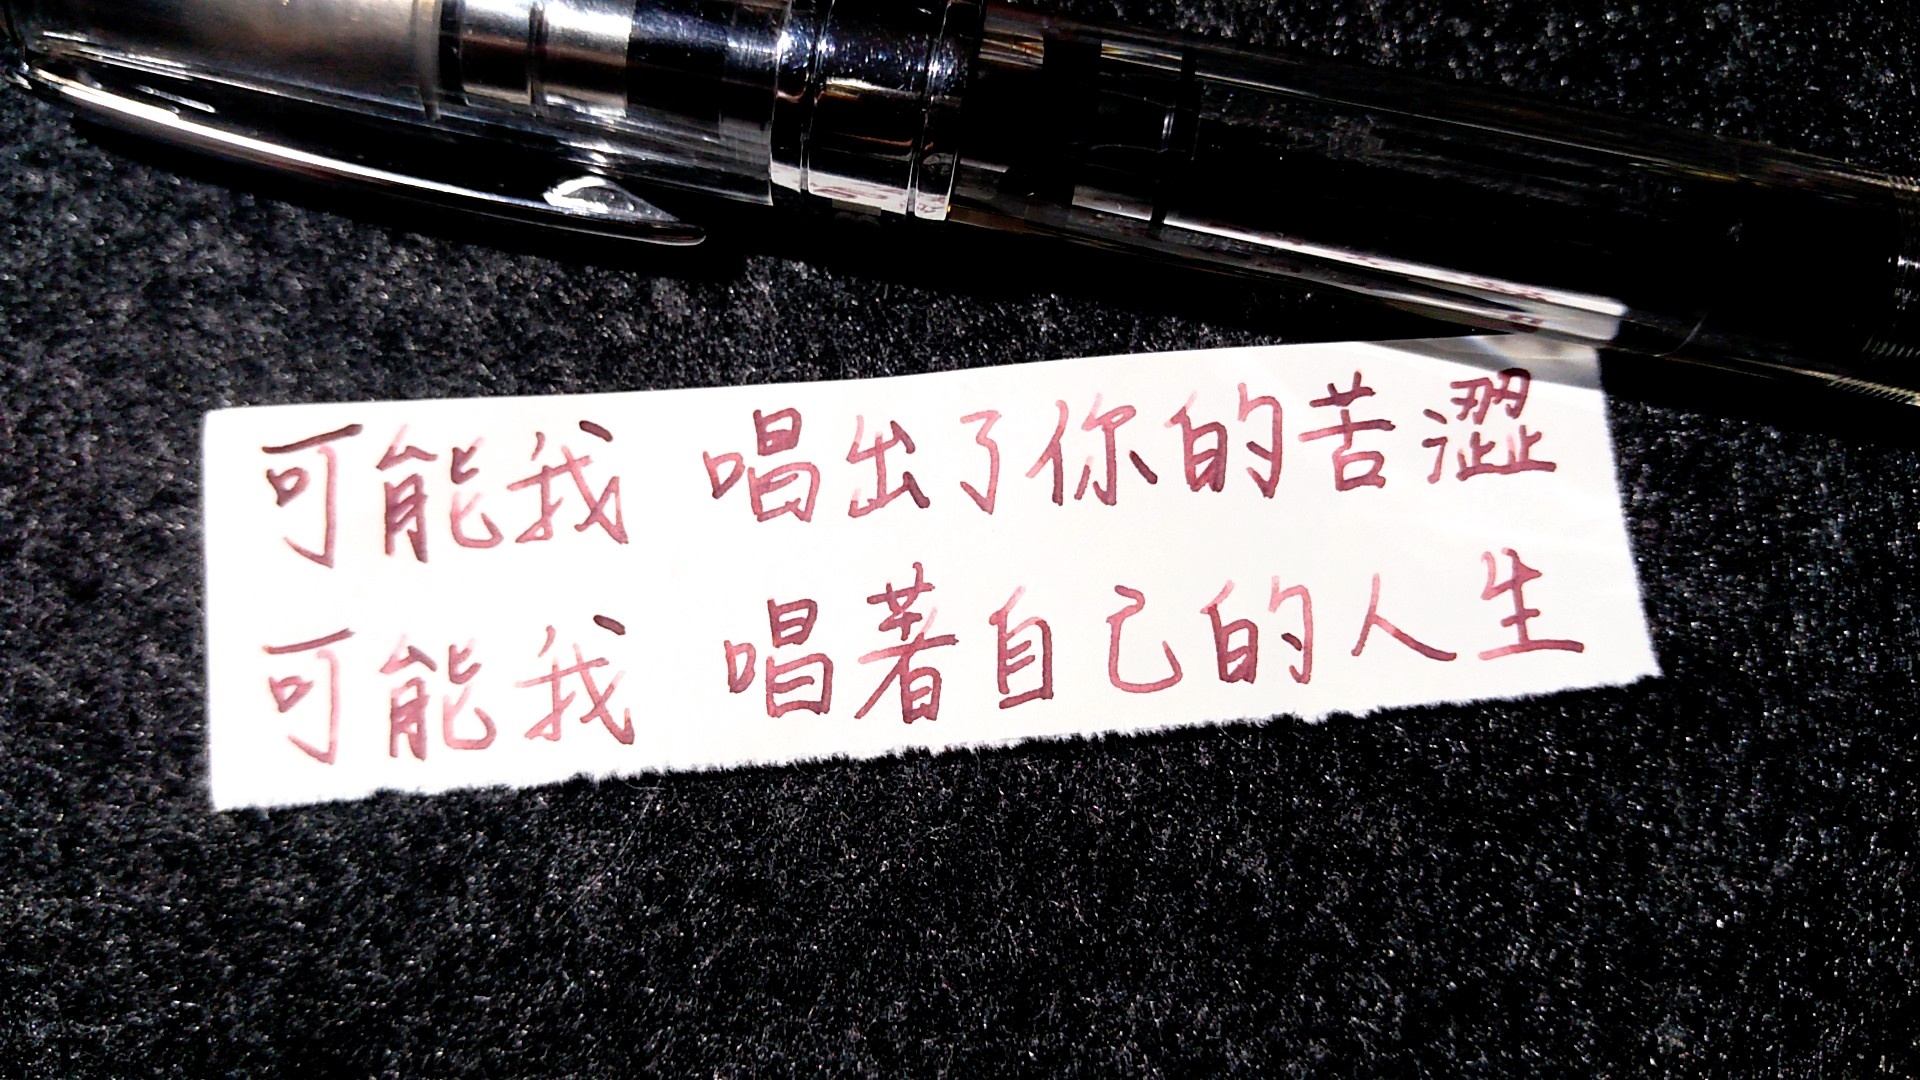 可能我 唱出了你的苦澀
可能我 唱著自己的人生